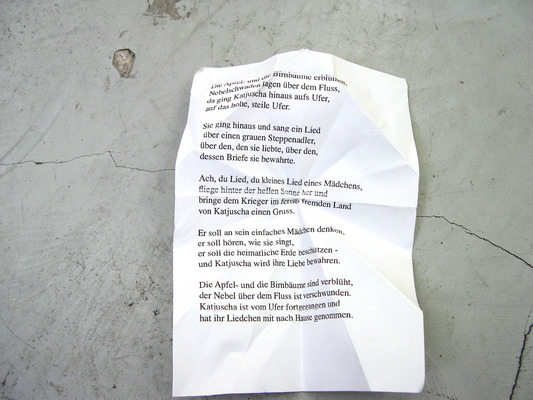 Die Apfel- und die Birnbäume erblühen,
Nebelschwaden lagen über dem Fluss,
da ging Katjuscha hinaus aufs Ufer,
auf das hohe, steile Ufer.
Sie ging hinaus und sang ein Lied
über einen grauen Steppenadler,
über den, den sie liebte, über den,
dessen Briefe sie bewahrte.
Ach, du Lied, du kleines Lied eines Mädchens,
fliege hinter der hellen Sonne her und
bringe dem Krieger im fernen fremden Land
von Katjuscha einen Gruss.
Er soll an sein einfaches Mädchen denken,
er soll hören, wie sie singt,
er soll die heimatliche Erde beschützen -
und Katjuscha wird ihre Liebe bewahren.
Die Apfel- und die Birnbäume sind verblüht,
der Nebel über dem Fluss ist verschwunden.
Katjuscha ist vom Ufer fortgegangen und
hat ihr Liedchen mit nach Hause genommen.